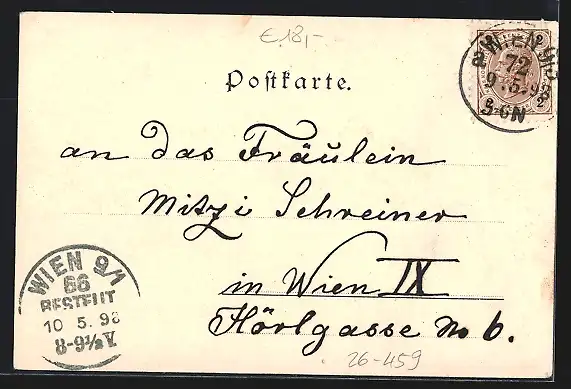 € 18,-
Postkarte.
WIEN 9/3
72
9. 5. 98
5-6N
an das Fräulein
Mitzi Schreiner
in Wien IX
Hörlgasse No 6.
WIEN 9/1
66
BESTELLT
10 5. 98
8-9½V
26-459